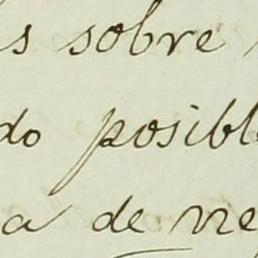 s sobre
do posibl
a de ne